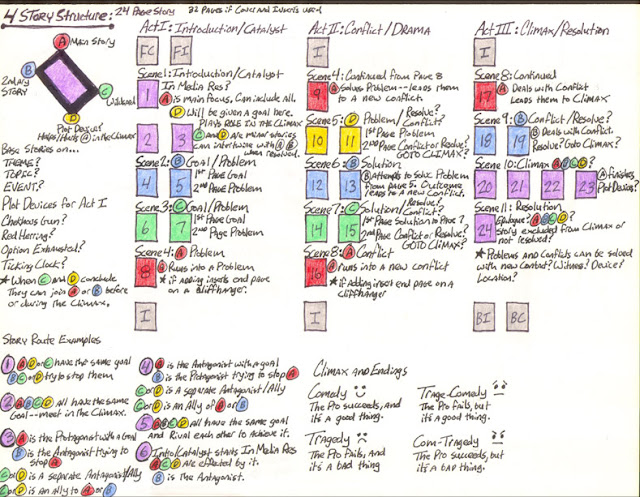 4 Story Structure: 24 Page Story 32 Pages if Cover and Inserts used
A Main Story
B 2ndary Story
C Wildcard
D Plot Device?
Helps/Hurts A in the Climax
Base Stories on...
Theme?
Topic?
Event?
Plot Devices for Act I
Checkhovs Gun?
Red Herring?
Option Exhausted?
Ticking Clock?
* When C and D conclude
They can join A or B before
or during the Climax.
Act I: Introduction/Catalyst
FC FI
Scene 1: Introduction/Catalyst
1 In Media Res?
A is main focus, Can include all.
D will be given a goal here.
Plays role in the Climax
2 3 C and D are minor stories
can intertwine with A B
when resolved.
Scene 2: B Goal/Problem
4 5 1st Page Goal
2nd Page Problem
Scene 3: C Goal/Problem
6 7 1st Page Goal
2nd Page Problem
Scene 4: A Problem
8 A Runs into a Problem
* if adding inserts end page
on a cliffhanger.
I
Act II: Conflict/Drama
I
Scene 4: Continued from Page 8
9 A Solves Problem--leads them
to a new conflict
Scene 5: D Problem/Resolve?
Conflict?
10 11 1st Page Problem
2nd Page Conflict or Resolve?
GOTO CLIMAX?
Scene 6: B Solution
12 13 B Attempts to solve Problem
from Page 5. Outcome
leads to a new Conflict
Scene 7: C Solution/Resolve?
Conflict?
14 15 1st Page Solution to Page 7
2nd Page Conflict or Resolve?
GOTO CLIMAX?
Scene 8: A Conflict
16 A runs into a new conflict
* if adding insert end page on a
cliffhanger
I
Act III: Climax/Resolution
I
Scene 8: Continued
17 A Deals with Conflict
Leads them to Climax
Scene 9: B Conflict/Resolve?
18 19 B Deals with Conflict.
Resolve?
Goto Climax?
Scene 10: Climax A B C D?
20 21 22 23 A finishes
Plot Device?
Scene 11: Resolution
24 Epilogue? A B C D?
Story excluded from Climax or
not resolved?
* Problems and Conflicts can be solved
with new Contact? Witness? Device?
Location?
BI BC
Story Route Examples
1 A D or C have the same goal
B C or D try to stop them
2 A B C D All have the same
Goal--meet in the Climax.
3 A is the Protagonist with a Goal
B is the Antagonist trying to
stop A
C or D is a separate Antagonist/Ally
C or D is an Ally to A or B
4 A is the Antagonist with a goal
B is the Protagonist trying to stop A
C or D is a separate Antagonist/Ally
C or D is an Ally of A or B
5 A B C D All have the same goal
and Rival each other to achieve it.
6 Into/Catalyst starts In Media Res
A C D are effected by it.
B is the Antagonist.
Climax and Endings
Comedy
The Pro succeeds, and
it's a good thing.
Tragedy
The Pro Fails, and
it's a bad thing
Trage-Comedy
The Pro fails, but
it's a good thing.
Com-Tragedy
The Pro succeeds, but
it's a bad thing.